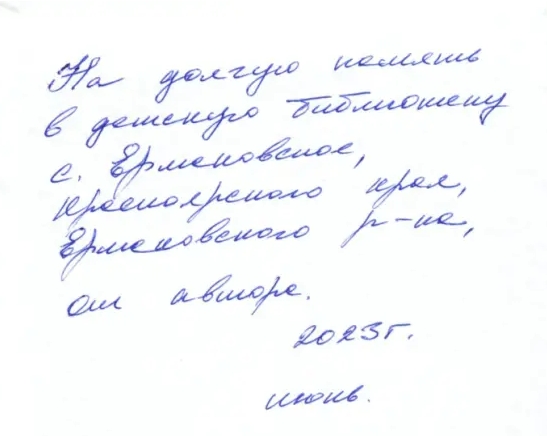 На долгую память
в детскую библиотеку
с. Ермаковское,
Красноярского края,
Ермаковского р-на,
от автора.
2023г.
июнь.